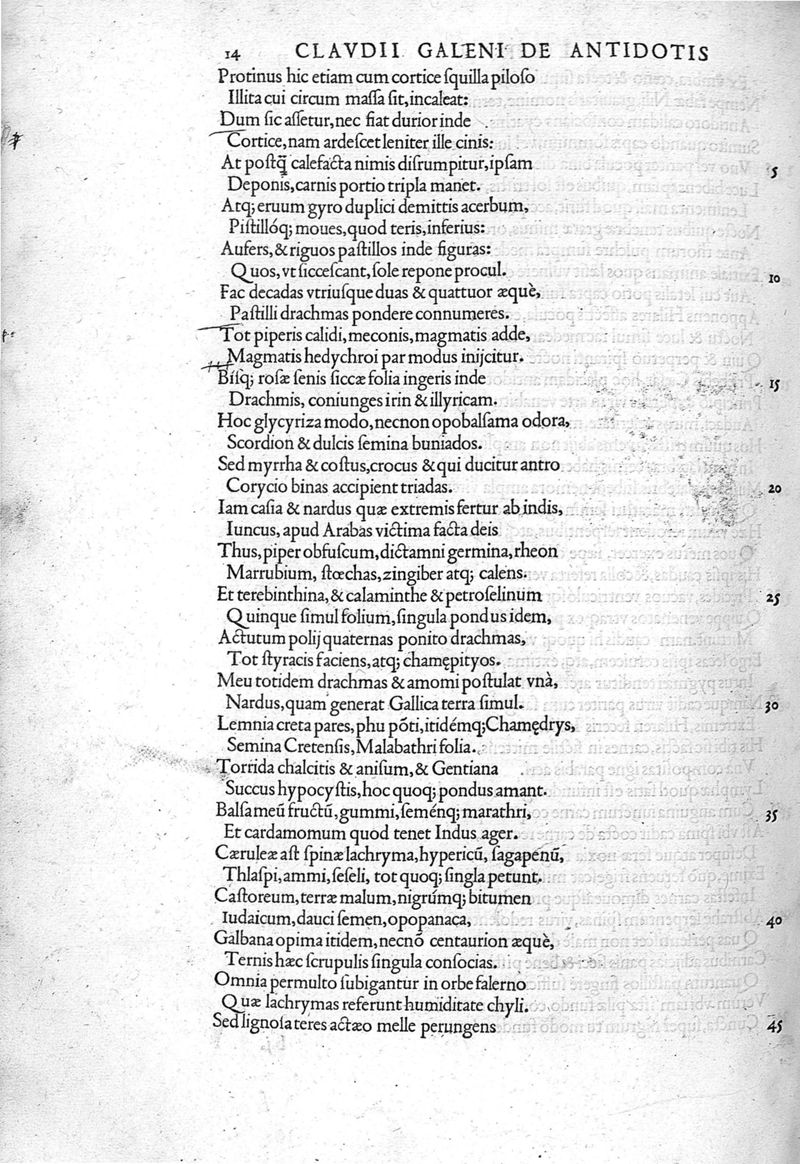 14 CLAVDII GALENI DE ANTIDOTIS
Protinus hic etiam cum cortice ſquilla piloſo
Illita cui circum maſſa ſit, incaleat:
Dum ſic aſſetur, nec fiat durior inde
Cortice, nam ardeſcet leniter ille cinis:
At poſtq̃ calefacta nimis diſrumpitur, ipſam 5
Deponis, carnis portio tripla manet.
Atq; eruum gyro duplici demittis acerbum,
Piſtillóq; moues, quod teris, inferius:
Aufers, & riguos paſtillos inde figuras:
Quos, vt ſicceſcant, ſole repone procul. 10
Fac decadas vtriuſque duas & quattuor æquè,
Paſtilli drachmas pondere connumeres.
Tot piperis calidi, meconis, magmatis adde,
Magmatis hedychroi par modus inijcitur.
Biſq; roſæ ſenis ſiccæ folia ingeris inde 15
Drachmis, coniunges irin & illyricam.
Hoc glycyriza modo, necnon opobalſama odora,
Scordion & dulcis ſemina buniados.
Sed myrrha & coſtus, crocus & qui ducitur antro
Corycio binas accipient triadas. 20
Iam caſia & nardus quæ extremis fertur ab indis,
Iuncus, apud Arabas victima facta deis
Thus, piper obfuſcum, dictamni germina, rheon
Marrubium, ſtœchas, zingiber atq; calens.
Et terebinthina, & calaminthe & petroſelinum 25
Quinque ſimul folium, ſingula pondus idem,
Actutum polij quaternas ponito drachmas,
Tot ſtyracis faciens, atq; chamępityos.
Meu totidem drachmas & amomi poſtulat vnà,
Nardus, quam generat Gallica terra ſimul. 30
Lemnia creta pares, phu põti, itidémq; Chamędrys,
Semina Cretenſis, Malabathri folia.
Torrida chalcitis & aniſum, & Gentiana
Succus hypocyſtis, hoc quoq; pondus amant.
Balſameũ fructũ, gummi, ſeménq; marathri, 35
Et cardamomum quod tenet Indus ager.
Cæruleæ aſt ſpinæ lachryma, hypericũ, ſagapenũ,
Thlaſpi, ammi, ſeſeli, tot quoq; ſingla petunt.
Caſtoreum, terræ malum, nigrúmq; bitumen
Iudaicum, dauci ſemen, opopanaca, 40
Galbana opima itidem, necnõ centaurion æquè,
Ternis hæc ſcrupulis ſingula conſocias.
Omnia permulto ſubigantur in orbe falerno
Quæ lachrymas referunt humiditate chyli.
Sed lignoſa teres actæo melle perungens 45